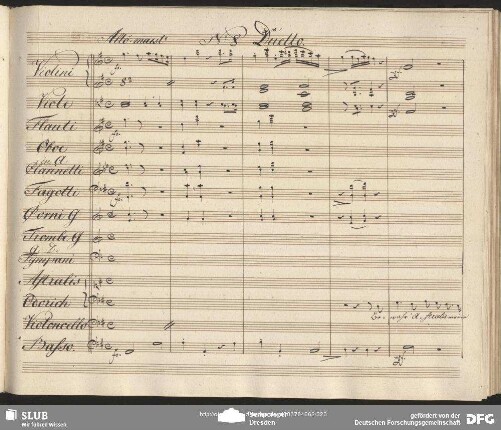 Allo maest. No 8 Duetto.
Violini
Viole
Flauti
Oboe
in A
Clarinetti
Fagotti
Corni G
Trombe G
Tympani
Astralis
Violoncello
Basso.
SLUB
Wir führen Wissen.
Dresden
gefördert von der
Deutschen Forschungsgemeinschaft
DFG